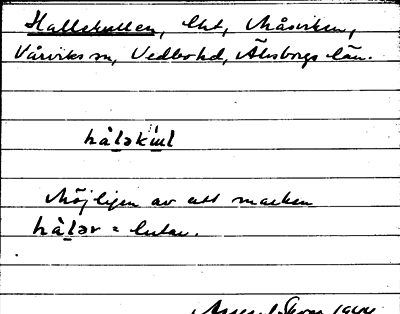 Hallekullen, lht, Måsviken,
Vårviks sn, Vedbo hd, Älvsborgs län.
hàləkùl
Möjligen av att marken
hàlər = lutar.